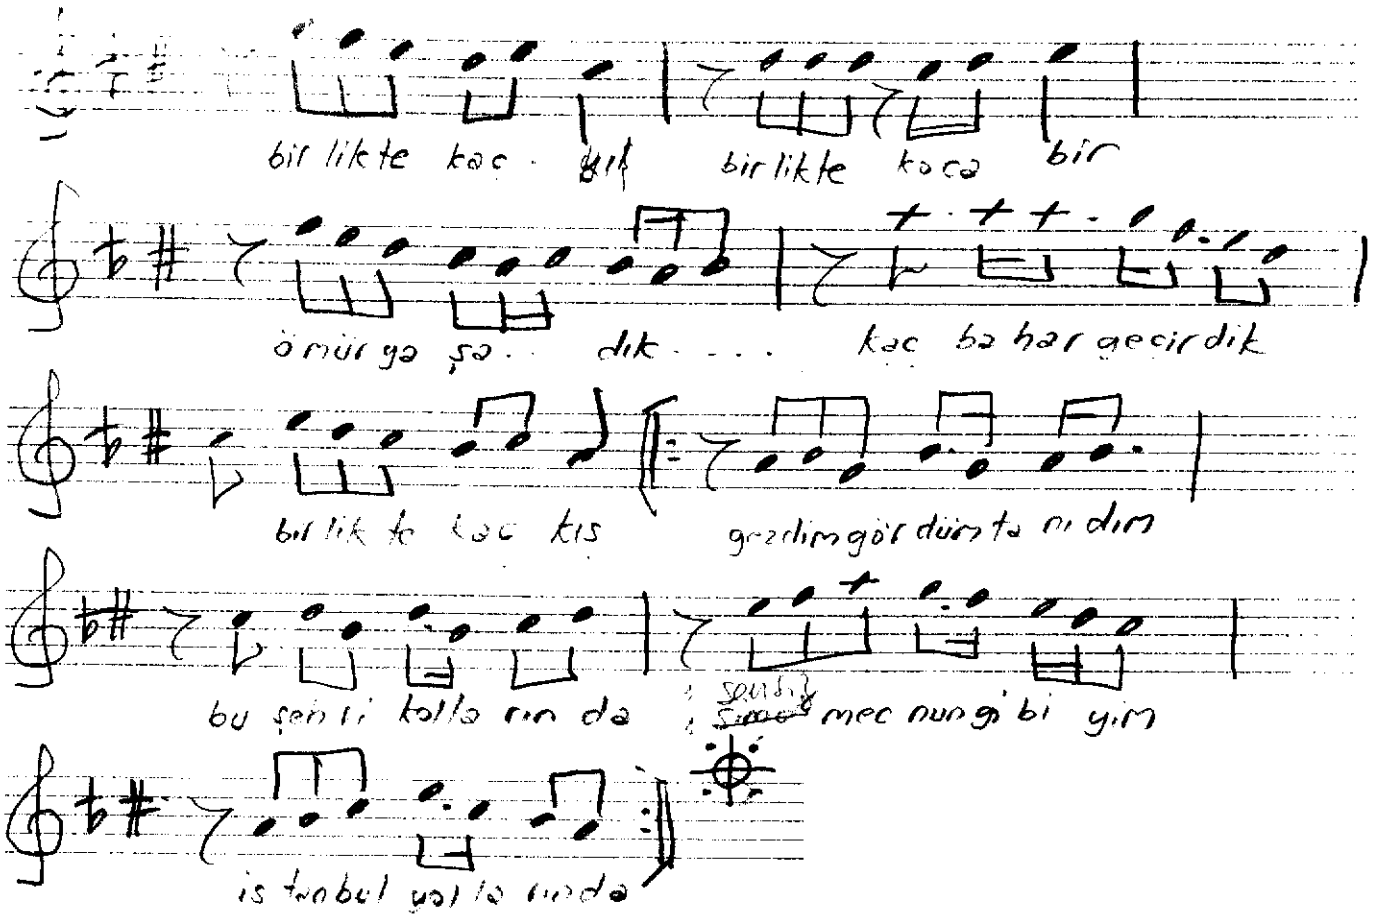 bir lik te kaç . yıl bir lik te koca bir
ömür ya şa . . dık . . . . kaç ba har geçir dik
bir lik te kaç kış gezdim gör düm ta nı dım
bu şeh ri kolla rın da mec nun gi bi yim
is tanbul yol la rında